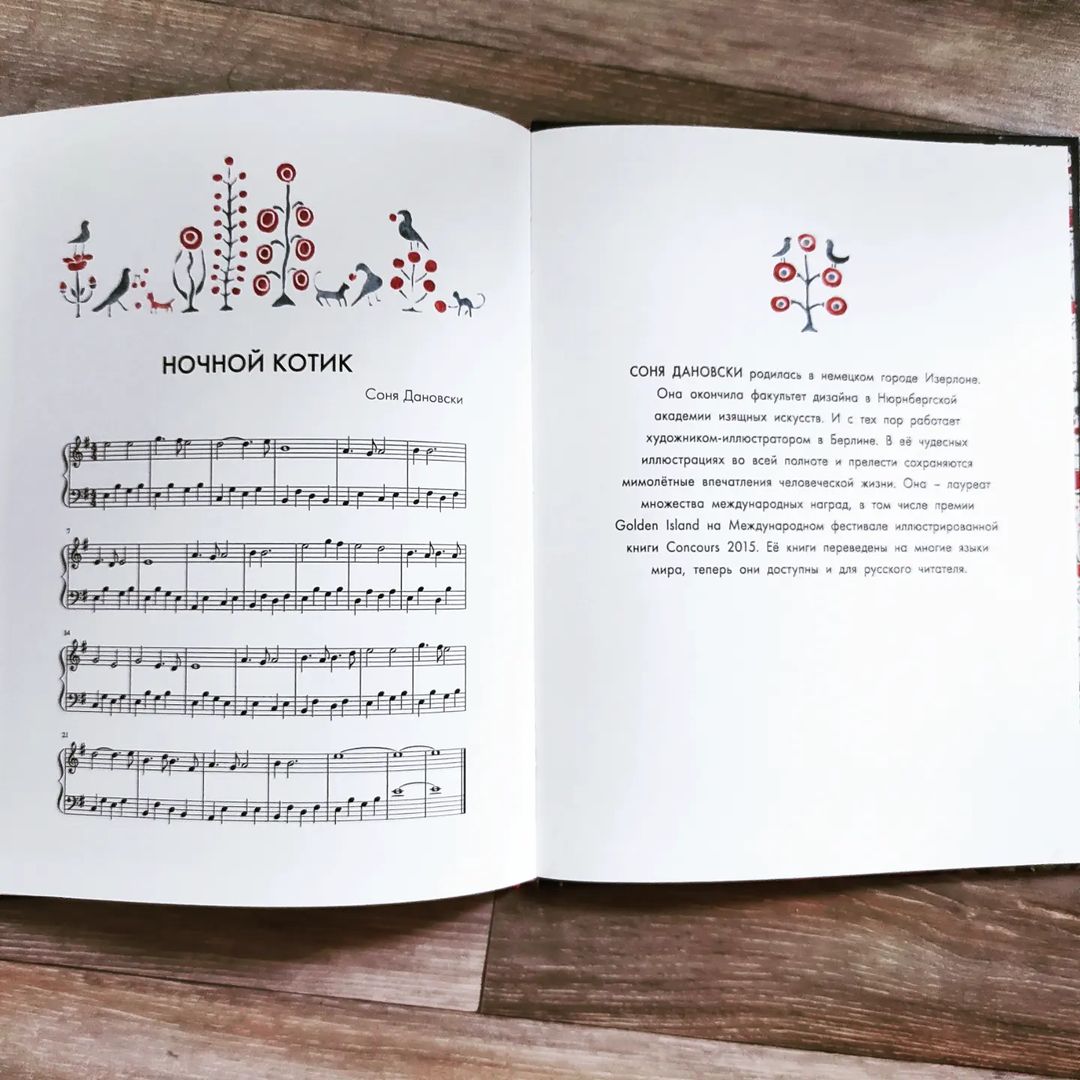 НОЧНОЙ КОТИК
Соня Дановски
7
14
21
СОНЯ ДАНОВСКИ родилась в немецком городе Изерлоне.
Она окончила факультет дизайна в Нюрнбергской
академии изящных искусств. И с тех пор работает
художником-иллюстратором в Берлине. В её чудесных
иллюстрациях во всей полноте и прелести сохраняются
мимолётные впечатления человеческой жизни. Она – лауреат
множества международных наград, в том числе премии
Golden Island на Международном фестивале иллюстрированной
книги Concours 2015. Её книги переведены на многие языки
мира, теперь они доступны и для русского читателя.